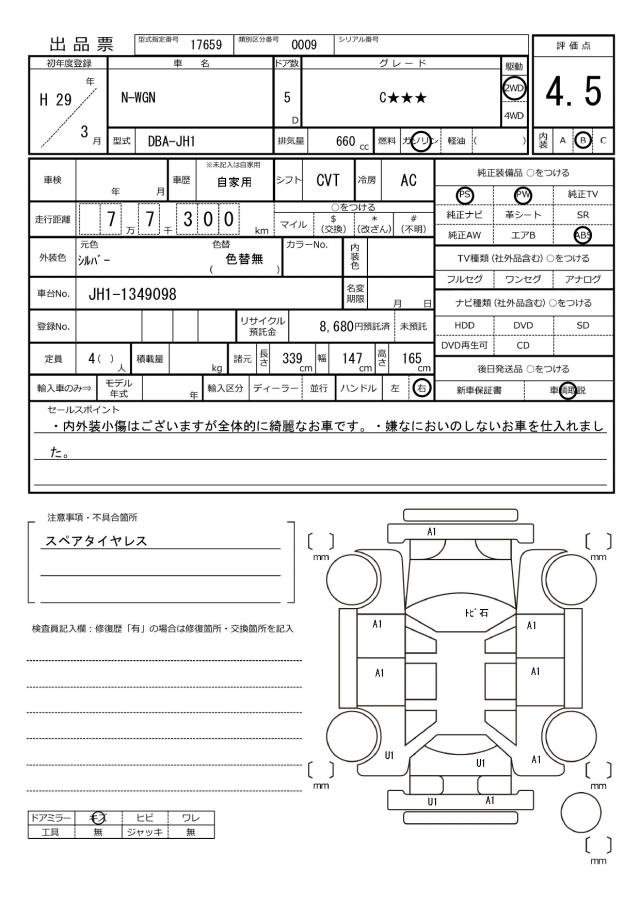 出品票 型式指定番号 17659 類別区分番号 0009 シリアル番号
初年度登録 車名 ドア数 グレード 駆動 評価点
H 29 年 N-WGN 5 D C★★★ 2WD 4.5
4WD
3 月 型式 DBA-JH1 排気量 660 cc 燃料 ガソリン 軽油 ( ) 内装 A B C
車検 年 月 車歴 ※未記入は自家用 自家用 シフト CVT 冷房 AC 純正装備品 ○をつける
PS PW 純正TV
走行距離 7 万 7 千 3 0 0 km ○をつける 純正ナビ 革シート SR
マイル $ (交換) * (改ざん) # (不明) 純正AW エアB ABS
外装色 元色 シルバー 色替 色替無 ( ) カラーNo. 内装色 TV種類 (社外品含む) ○をつける
フルセグ ワンセグ アナログ
車台No. JH1-1349098 名変期限 月 日 ナビ種類 (社外品含む) ○をつける
登録No. リサイクル預託金 8,680円預託済 未預託 HDD DVD SD
DVD再生可 CD
定員 4 ( ) 人 積載量 kg 諸元 長さ 339 cm 幅 147 cm 高さ 165 cm 後日発送品 ○をつける
輸入車のみ⇒ モデル年式 年 輸入区分 ディーラー 並行 ハンドル 左 右 新車保証書 車輌取説
セールスポイント
・内外装小傷はございますが全体的に綺麗なお車です。・嫌なにおいのしないお車を仕入れまし
た。
注意事項・不具合箇所
スペアタイヤレス
検査員記入欄：修復歴「有」の場合は修復箇所・交換箇所を記入
A1
mm mm
トビ石
A1 A1
A1 A1
U1 U1 A1
mm U1 A1 mm
ドアミラー キズ ヒビ ワレ
工具 無 ジャッキ 無
mm